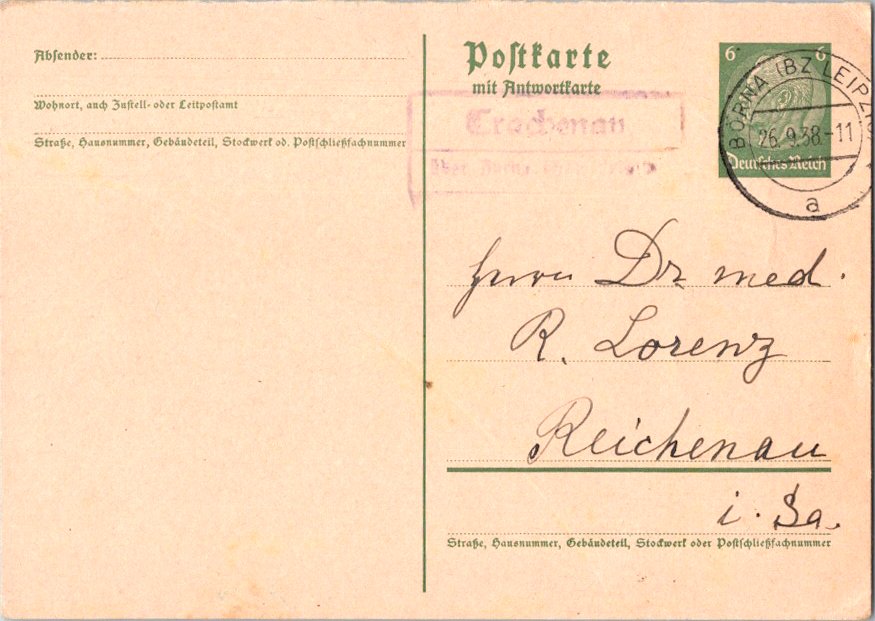 Absender:
Wohnort, auch Zustell- oder Leitpostamt
Straße, Hausnummer, Gebäudeteil, Stockwerk od. Postschließfachnummer
Postkarte
mit Antwortkarte
6 6
Deutsches Reich
BORNA (BZ LEIPZIG)
26.9.38.-11
a
über Borna
Herrn Dr med.
R. Lorenz
Reichenau
i. Sa.
Straße, Hausnummer, Gebäudeteil, Stockwerk oder Postschließfachnummer